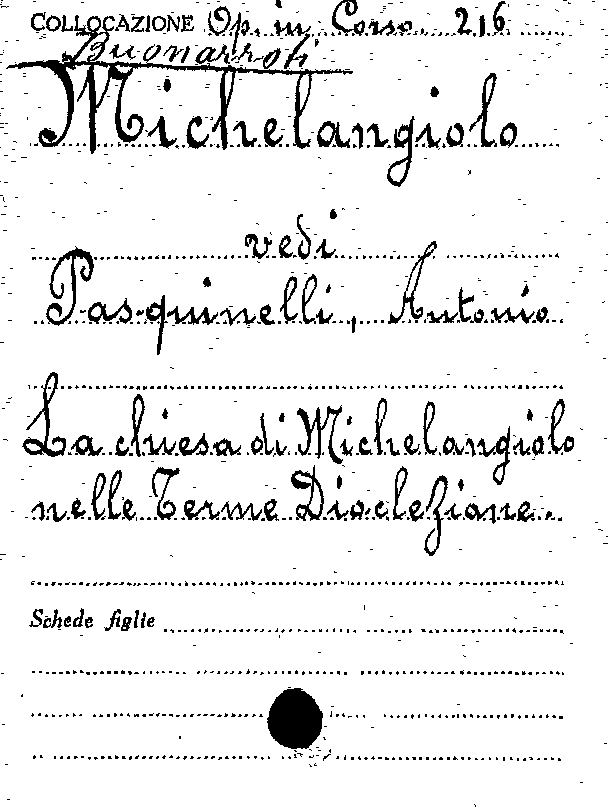 COLLOCAZIONE Op. in Corso. 216
Buonarroti
Michelangiolo
vedi
Pasquinelli, Antonio
La chiesa di Michelangiolo
nelle Terme Diocleziane.
Schede figlie